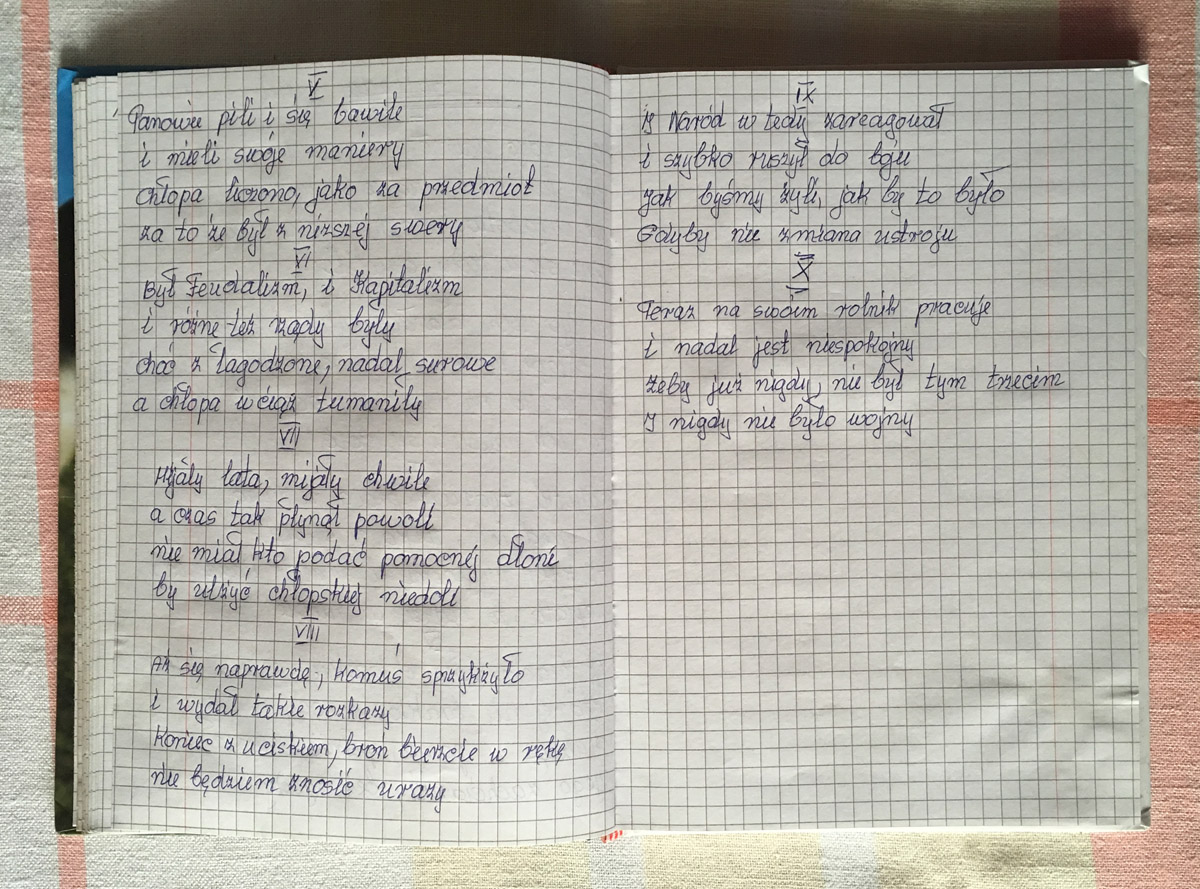 V
Panowie pili i się bawile
i mieli swoje maniery
chłopa liczono, jako za przedmiot
za to że był z niższej swery
VI
Był Feudalizm, i Kapitalizm
i różne też rządy były
choć z łagodzone, nadal surowe
a chłopa wciąż tumaniły
VII
Mijały lata, mijały chwile
a czas tak płynął powoli
nie miał kto podać pomocnej dłoni
by ulżyć chłopskiej niedoli
VIII
Aż się naprawdę, komuś sprzykżyło
i wydał takie rozkazy
koniec z uciskiem, bron bierzcie w rękę
nie będziem znosić urazy
IX
I Naród w tedy zareagował
i szybko ruszył do boju
Jak byśmy żyli, jak by to było
Gdyby nie zmiana ustroju
X
Teraz na swoim rolnik pracuje
i nadal jest niespokojny
żeby już nigdy, nie był tym trzecim
I nigdy nie było wojny